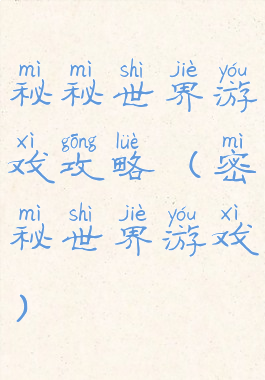 mì mì shì jiè yóu
秘秘世界游
xì gōng lüè mì
戏攻略（密
mì shì jiè yóu xì
秘世界游戏
）